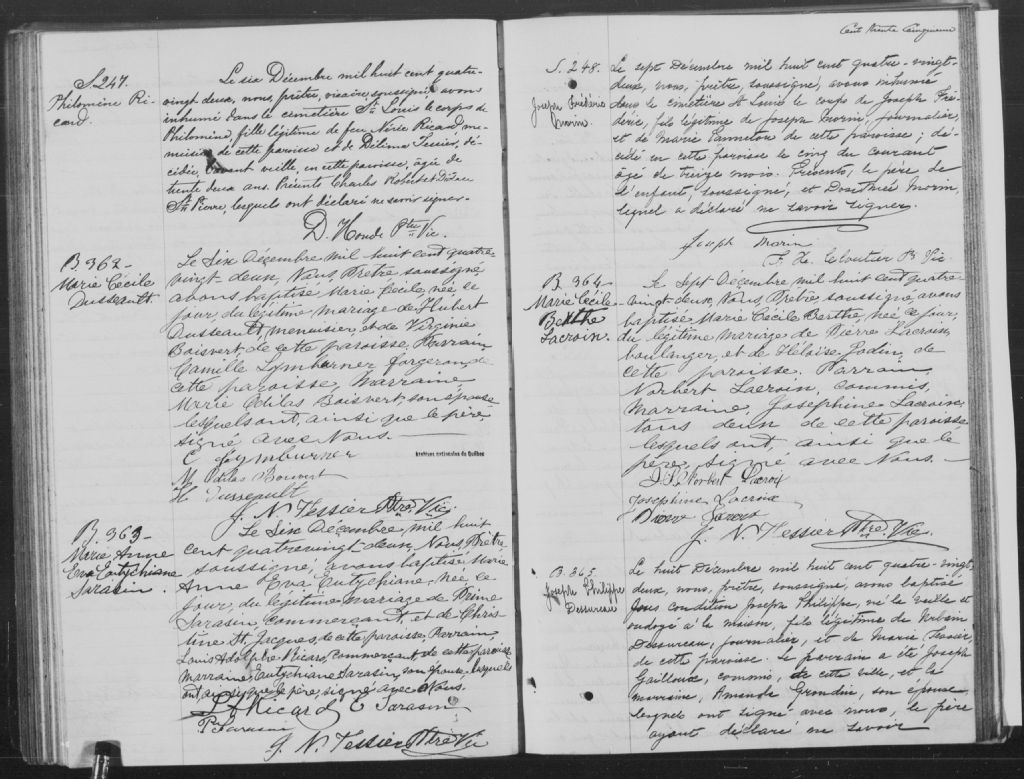 S. 247.
Philomène Ri-
card.
Le six Décembre mil huit cent quatre-
vingt-deux, nous, prêtre, vicaire, soussigné avons
inhumé dans le cimetière St Louis le corps de
Philomène, fille légitime de feu Nérée Ricard, me-
nuisier de cette paroisse et de Délima Tessier, dé-
cédée, avant veille, en cette paroisse, âgée de
trente deux ans. Présents Charles Robert et
St Pierre, lesquels ont déclaré ne savoir signer.
D. Houde Ptre Vic.
B. 362-
Marie Cécile
Dusseault.
Le Six Décembre mil huit cent quatre-
vingt-deux, Nous, Prêtre soussigné
avons baptisé Marie Cécile, née ce
jour, du légitime mariage de Hubert
Dusseault, menuisier, et de Virginie
Boisvert, de cette paroisse, Parrain,
Camille Lymburner forgeron, de
cette paroisse, Marraine,
Marie Odilas Boisvert, son épouse
lesquels ont, ainsi que le père,
signé avec Nous.
C Lymburner
Archives nationales du Québec
M Odilas Boisvert
H Dusseault
J. N. Tessier Ptre Vic.
B. 363-
Marie Anne
Eva Eutychiane
Sarasin.
Le Six Décembre, mil huit
cent quatrevingt-deux, Nous, Prêtre,
soussigné, avons baptisé Marie
Anne Eva Eutychiane, née ce
jour, du légitime mariage de Prime
Sarasin commerçant, et de Chris-
tine St. Jacques, de cette paroisse, Parrain,
Louis Adolphe Ricard, commerçant, de cette paroisse,
Marraine, Eutychiane Sarasin, son épouse, lesquels
ont, ainsi que le père, signé avec Nous.
L A Ricard E Sarasin
P Sarasin
J. N. Tessier Ptre Vic
Cent trente Cinquième
S. 248.
Joseph Frédéric
Morin.
Le sept Décembre mil huit cent quatre-vingt-
deux, nous, prêtre, soussigné, avons inhumé
dans le cimetière St Louis le corps de Joseph Fré-
déric, fils légitime de Joseph Morin, journalier,
et de Marie Panneton de cette paroisse; dé-
cédé en cette paroisse le cinq du courant
âgé de treize mois. Présents, le père de
l'enfant, soussigné, et Dosithée Morin,
lequel a déclaré ne savoir signer.
Joseph Morin
F. X. Cloutier P. Vic.
B. 364-
Marie Cécile
Berthe
Lacroix.
Le Sept Décembre, mil huit cent quatre
vingt-deux, Nous, Prêtre, soussigné, avons
baptisé Marie Cécile Berthe, née ce jour,
du légitime mariage de Pierre Lacroix,
boulanger, et de Héloïse Godin, de
cette paroisse. Parrain,
Norbert Lacroix, commis,
Marraine, Joséphine Lacroix,
tous deux de cette paroisse,
lesquels ont, ainsi que le
père, signé avec Nous.
Norbert Lacroix
Josephine Lacroix
J. N. Tessier Ptre Vic.
B. 365
Joseph Philippe
Dessureau
Le huit Décembre mil huit cent quatre-vingt-
deux, nous, prêtre, soussigné, avons baptisé
sous condition Joseph Philippe, né la veille et
ondoyé à la maison, fils légitime de Urbain
Dessureau, journalier, et de Marie
de cette paroisse. Le parrain a été Joseph
Gailloux, commis, de cette ville, et la
marraine, Amanda Grondin, son épouse
lesquels ont signé avec nous, le père
ayant déclaré ne savoir